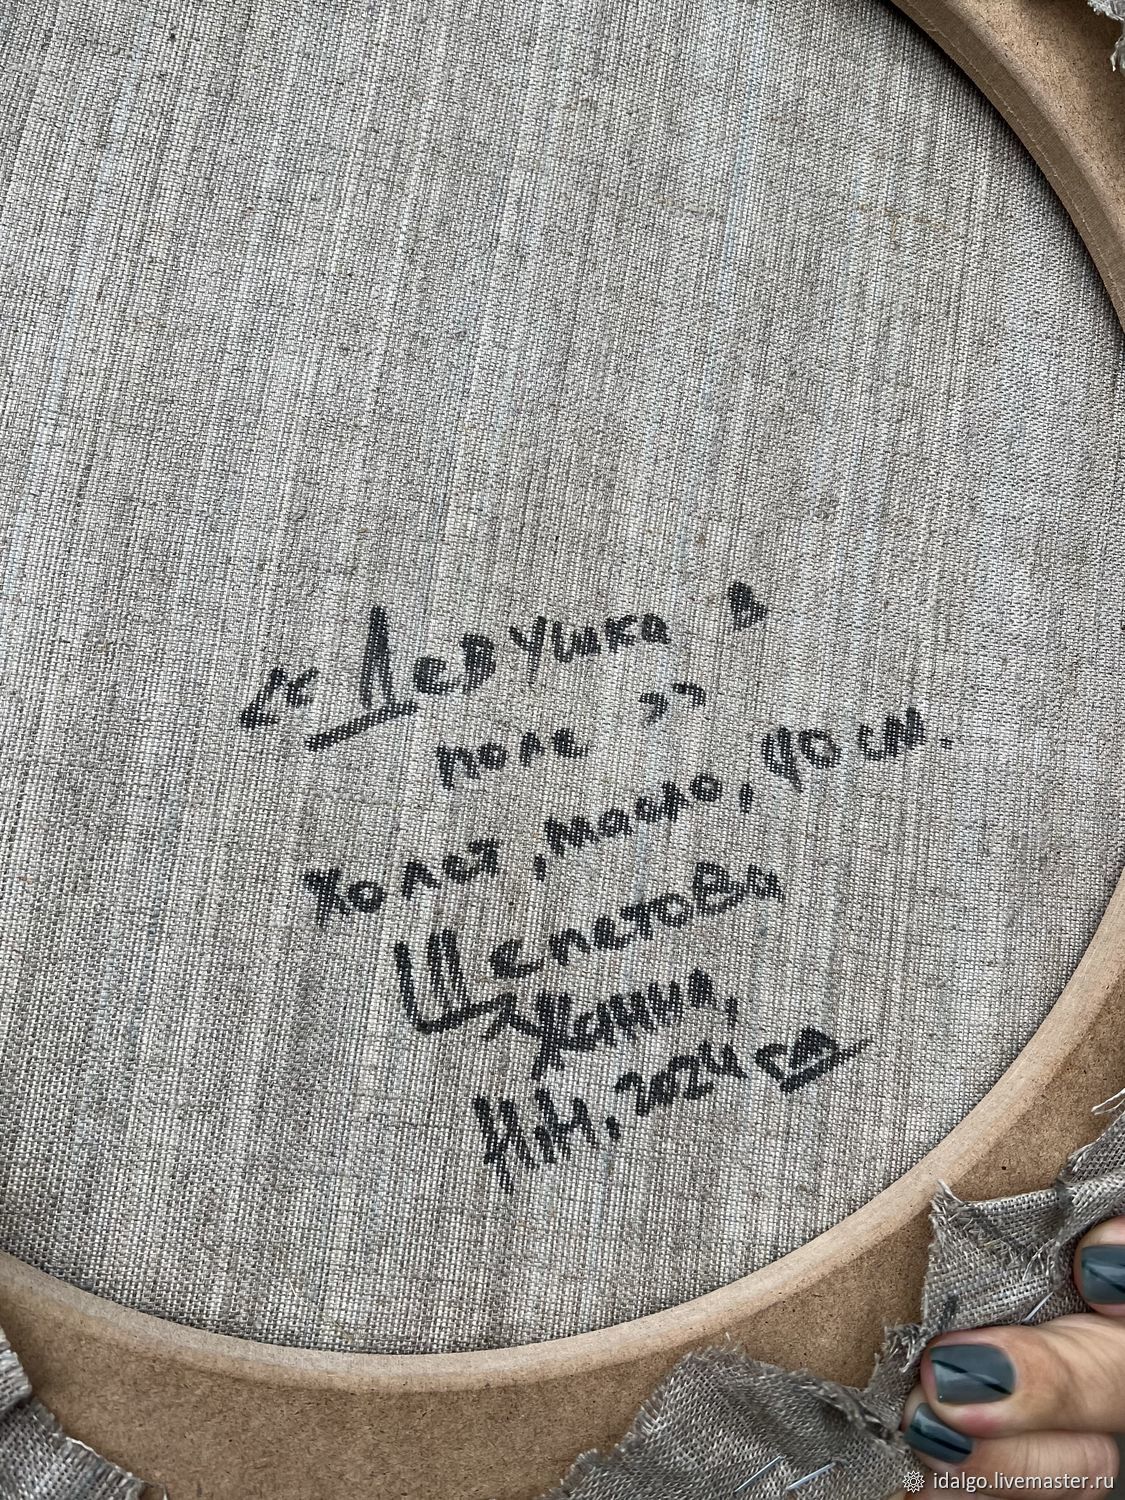 «Девушка в
поле»
холст, масло, 40 см.
Щепетова
Жанна,
Н.Н, 2024 год
idalgo.livemaster.ru